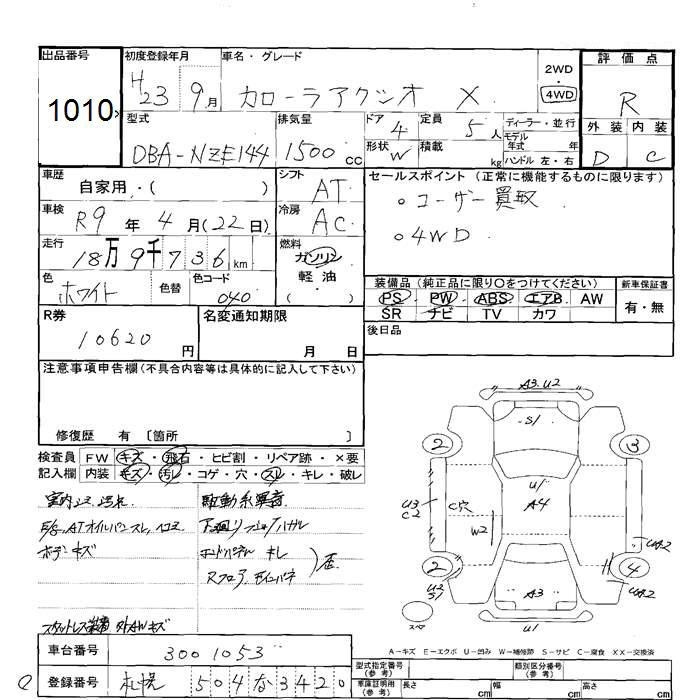 出品番号
1010
初度登録年月
H23 9月
車名・グレード
カローラアクシオ X
2WD
・
4WD
評価点
R
外装 内装
D C
型式
DBA-NZE144
排気量
1500cc
ドア 4
形状 W
定員 5人
積載 kg
ディーラー・並行
モデル年式 年
ハンドル 左・右
車歴
自家用・( )
シフト
AT
セールスポイント (正常に機能するものに限ります)
。ユーザー買取
。4WD
車検
R9年4月(22日)
冷房
AC
走行
18万9千736km
燃料
ガソリン
・
軽油
( )
色
ホワイト
色替
色コード
040
装備品 (純正品に限り○をつけてください)
PS PW ABS エアB AW
SR ナビ TV カワ
新車保証書
有・無
後日品
R券
10620円
名変通知期限
月 日
注意事項申告欄(不具合内容等は具体的に記入して下さい)
修復歴 有 〔箇所 〕
検査員記入欄
FW キズ・飛石・ヒビ割・リペア跡・×要
内装 キズ・汚レ・コゲ・穴・スレ・キレ・破レ
駆動系異音
ボデーキズ
車台番号
3001053
登録番号
札幌 504 な 3420
A3.U2
S/
2
3
U/
A4
U3
C2
C穴
W2
UA2
2
4
U2
S/
A3
UA2
U1
スペア
A-キズ E-エクボ U-凹み W-補修跡 S-サビ C-腐食 XX-交換済
型式指定番号
(参考)
類別区分番号
(参考)
車庫証明用
(参考)
長さ cm
幅 cm
高さ cm